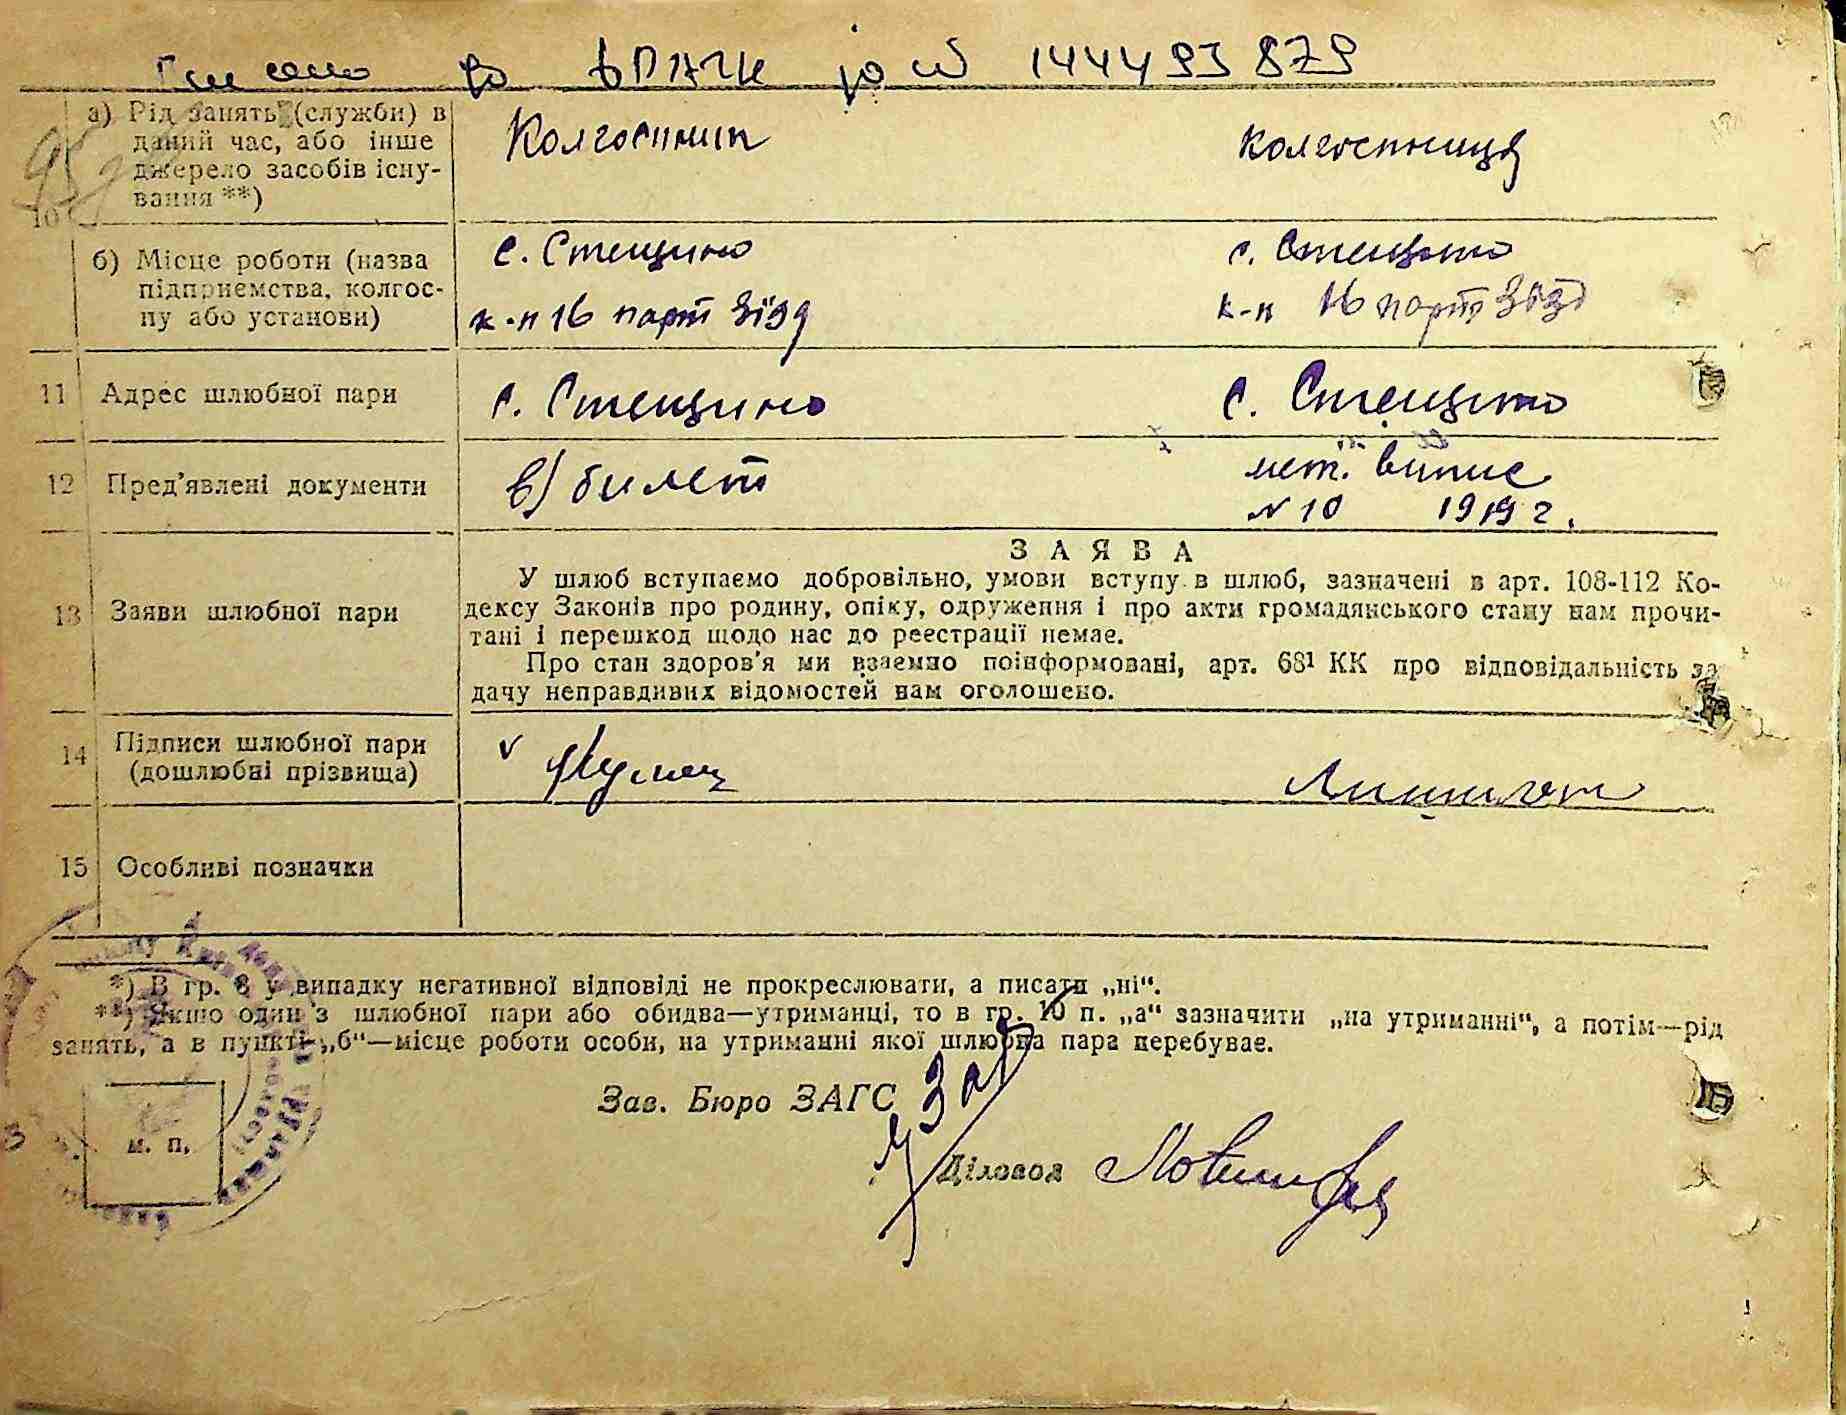 144493879
а) Рід занять (служби) в
даний час, або інше
джерело засобів існу-
вання **)
10
Колгоспник
колгоспниця
б) Місце роботи (назва
підприємства, колгос-
пу або установи)
с. Стещино
к-п 16 парт зїзд
с. Стещино
к-п 16 парт зїзд
11 Адрес шлюбної пари
с. Стещино
с. Стещино
12 Пред'явлені документи
в/билет
мет. випис
№ 10 1919 г.
13 Заяви шлюбної пари
ЗАЯВА
У шлюб вступаємо добровільно, умови вступу в шлюб, зазначені в арт. 108-112 Ко-
дексу Законів про родину, опіку, одруження і про акти громадянського стану нам прочи-
тані і перешкод щодо нас до реєстрації немає.
Про стан здоров'я ми взаємно поінформовані, арт. 68¹ КК про відповідальність за
дачу неправдивих відомостей нам оголошено.
14 Підписи шлюбної пари
(дошлюбні прізвища)
15 Особливі позначки
*) В гр. 8 у випадку негативної відповіді не прокреслювати, а писати „ні“.
**) Якшо один з шлюбної пари або обидва—утриманці, то в гр. 10 п. „а“ зазначити „на утриманні“, а потім—рід
занять, а в пункті „б“—місце роботи особи, на утриманні якої шлюбна пара перебуває.
Зав. Бюро ЗАГС
м. п.
Діловод